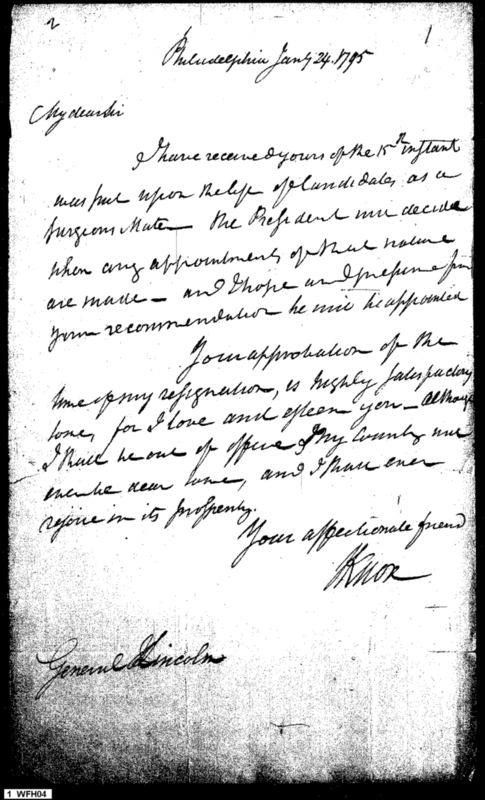 2
1
Philadelphia Jany 24. 1795
My dear sir
I have received yours of the 15th instant
was put upon the list of Candidates as a
surgeons Mate— the President will decide
when any appointments of that nature
are made— and I hope and presume from
your recommendation he will be appointed
Your approbation of the
time of my resignation, is highly satisfactory
tome, for I love and esteem you— Although
I shall be out of office My Country will
ever be dear tome, and I shall ever
rejoice in its prosperity.
Your affectionate friend
HKnox
General Lincoln
1 WFH04